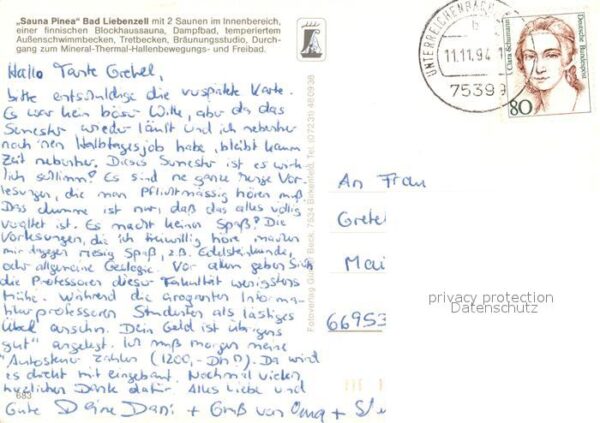 „Sauna Pinea“ Bad Liebenzell mit 2 Saunen im Innenbereich,
einer finnischen Blockhaussauna, Dampfbad, temperiertem
Außenschwimmbecken, Tretbecken, Bräunungsstudio, Durch-
gang zum Mineral-Thermal-Hallenbewegungs- und Freibad.
Hallo Tante Gretel,
bitte entschuldige die verspätete Karte.
Es war kein böser Wille, aber da das
Semester wieder läuft und ich nebenher
noch nen Halbtagesjob habe, bleibt kaum
Zeit nebenher. Dieses Semester ist es wirk-
lich schlimm! Es sind ne ganze Menge Vor-
lesungen, die man Pflichtmässig hören muß.
Das dumme ist nur, daß das alles völlig
veraltet ist. Es macht keinen Spaß! Die
Vorlesungen, die ich freiwillig höre, machen
mir dagegen riesig Spaß, z.B. Edelsteinkunde,
oder allgemeine Geologie. Vor allem geben sich
die Professoren dieser Fakultät wenigstens
Mühe. Während die arroganten Informa-
tikerprofessoren Studenten als lästiges
Übel ansehen. Dein Geld ist übrigens
gut" angelegt. Ich muß morgen meine
"Autosteuer zahlen (1200,- DM). Da wird
es direkt mit eingebaut. Nochmal vielen,
herzlichen Dank dafür. Alles Liebe und
Gute Deine Dani + Gruß von Oma +
683
Fotoverlag Beck, 7534 Birkenfeld, Tel. (07231) 48 09 38
UNTERREICHENBACH
b
11.11.94
75399
Clara Schumann
Deutsche Bundespost
80
An Frau
Gretel
Mai
66953
privacy protection
Datenschutz